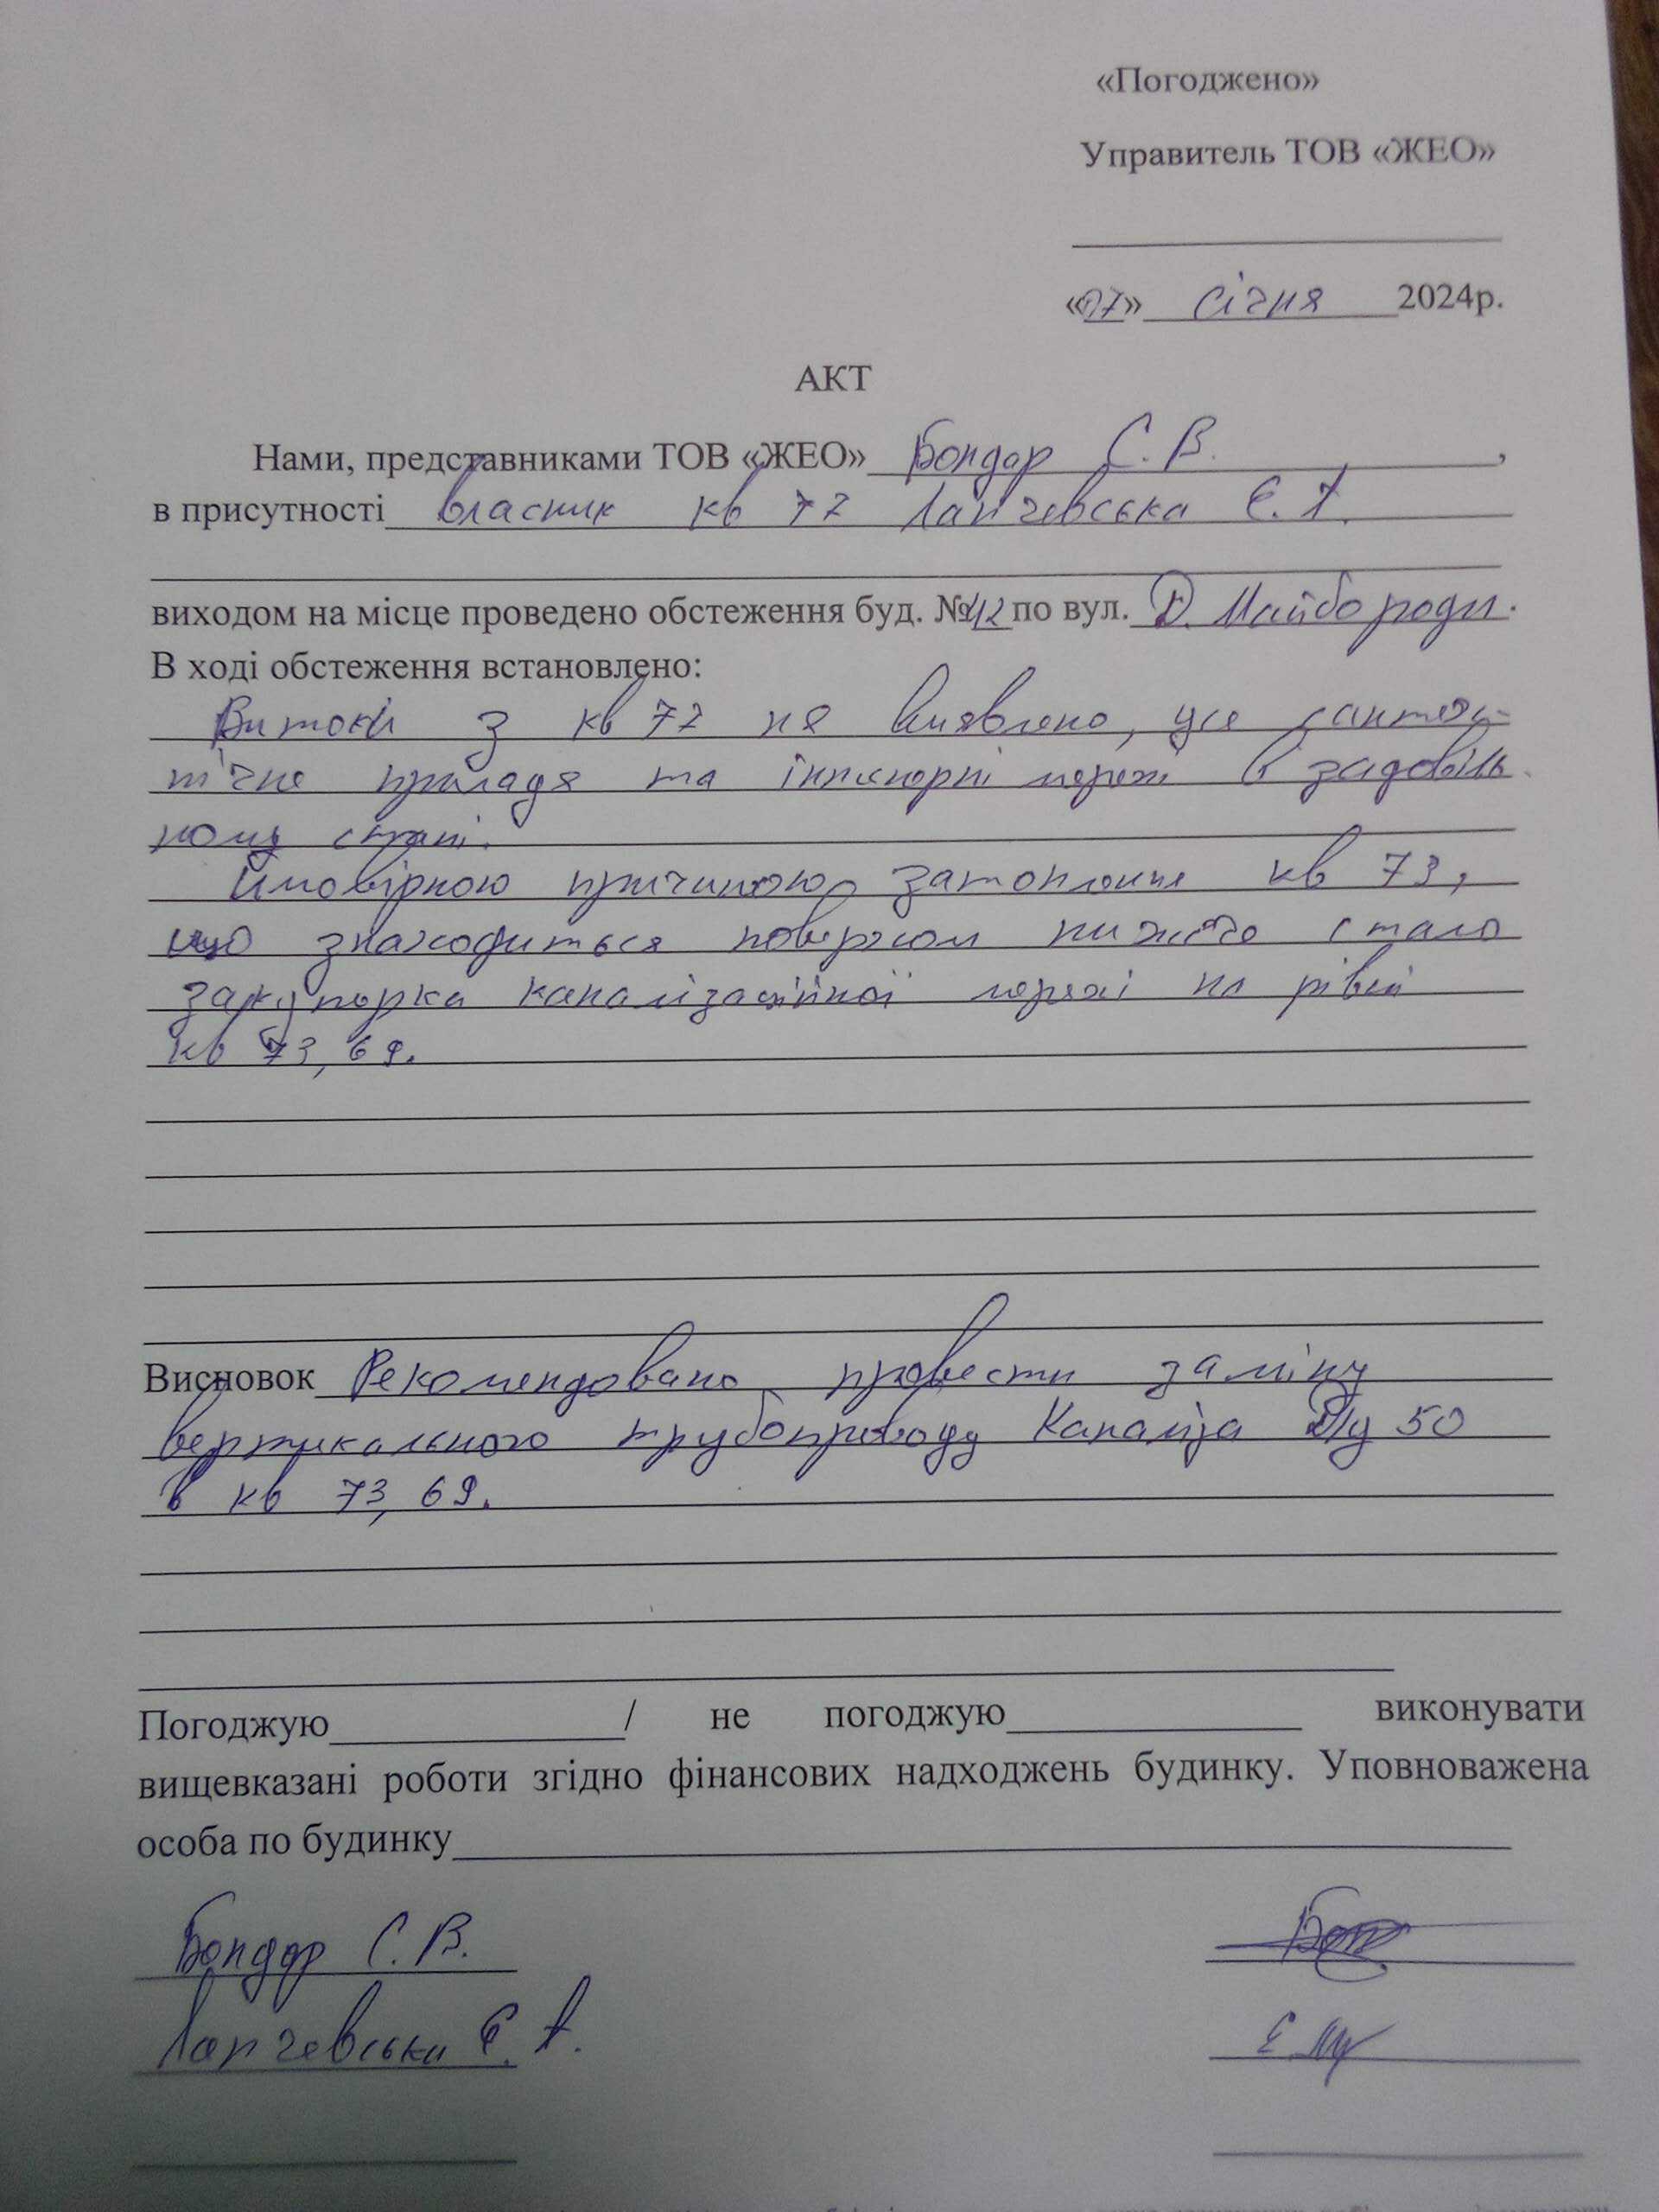 «Погоджено»
Управитель ТОВ «ЖЕО»
«07» січня 2024р.
АКТ
Нами, представниками ТОВ «ЖЕО» Бондар С. В.,
в присутності власник кв 77 Лапчевська Є. А.
виходом на місце проведено обстеження буд. №42 по вул. Д. Майбороди.
В ході обстеження встановлено:
Витоків з кв 77 не виявлено, усе сантех-
нічне приладдя та інженерні мережі в задовіль-
ному стані.
Ймовірною причиною затоплення кв 73,
що знаходиться поверхом нижче стало
закупорка каналізаційної мережі на рівні
кв 73, 69.
Висновок Рекомендовано провести заміну
вертикального трубопроводу Каналіза Д/у 50
в кв 73, 69.
Погоджую / не погоджую виконувати
вищевказані роботи згідно фінансових надходжень будинку. Уповноважена
особа по будинку
Бондар С. В.
Лапчевська Є. А.